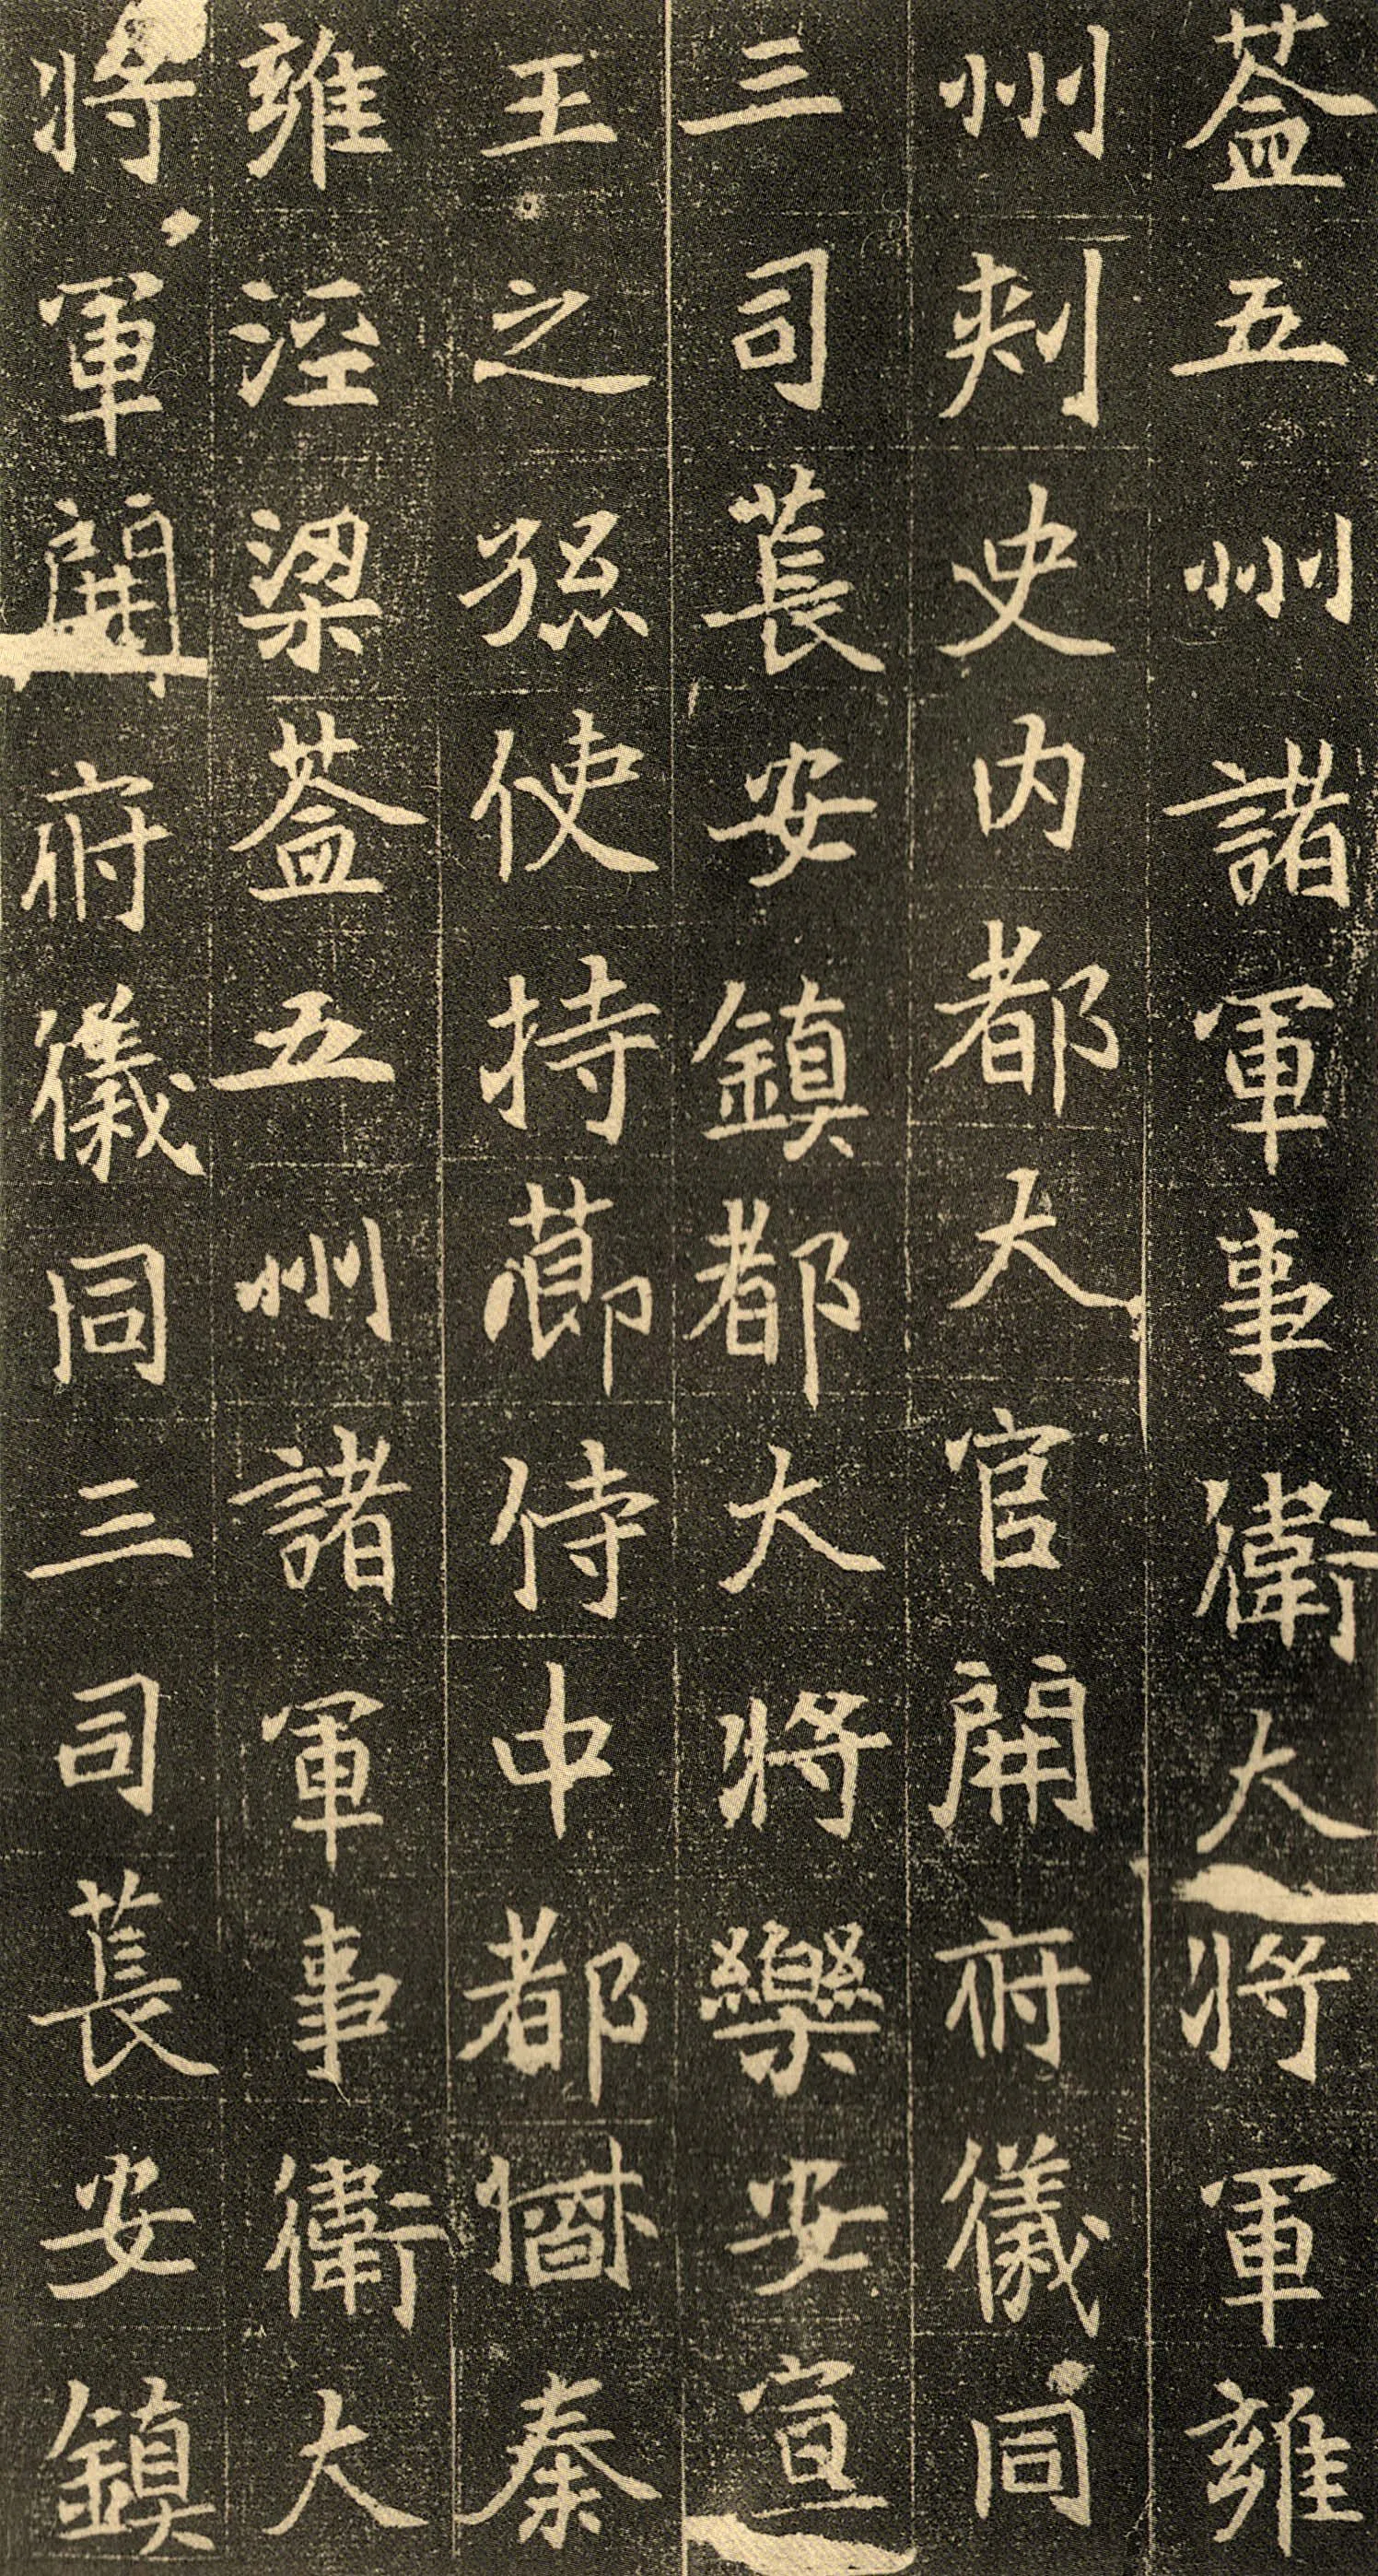 益五州諸軍事衛大將軍雍
州刾史內都大官開府儀同
三司萇安鎮都大將樂安宣
王之孫使持莭侍中都督秦
雍涇梁益五州諸軍事衛大
將軍開府儀同三司萇安鎮